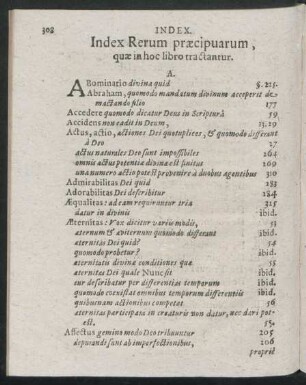 308 INDEX.
Index Rerum præcipuarum,
quæ in hoc libro tractantur.
A.
ABominatio divina quid 8. 225.
Abraham, quomodo mandatum divinum acceperit de
mactando filio 177
Accedere quomodo dicatur Deus in Scripturâ 59
Accidens non cadit in Deum, 15.29
Actus, actio, actiones Dei quotuplices, & quomodo differant
à Deo 27
actus naturales Deo sunt impossibiles 264
omnis actus potentia divina est finitus 260
una numero actio potest provenire à duobus agentibus 310
Admirabilitas Dei quid 283
Adorabilitas Dei describitur 284
Æqualitas: ad eam requiruntur tria 315
datur in divinis ibid.
Æternitas: Vox dicitur variis modis, 53
æternum & æviternum quomodo differant ibid.
æternitas Dei quid? 54
quomodo probetur? ibid.
æternitatis divinæ conditiones quæ 55
æternitas Dei quale Nunc sit ibid.
cur describatur per differentias temporum ibid.
quomodo coexistat omnibus temporum differentiis ibid.
quibusnam actionibus competat 56
æternitas participata in creaturis non datur, nec dari pot-
est. 55.
Affectus gemino modo Deo tribuuntur 205
depurandi sunt ab imperfectionibus, 206
proprie